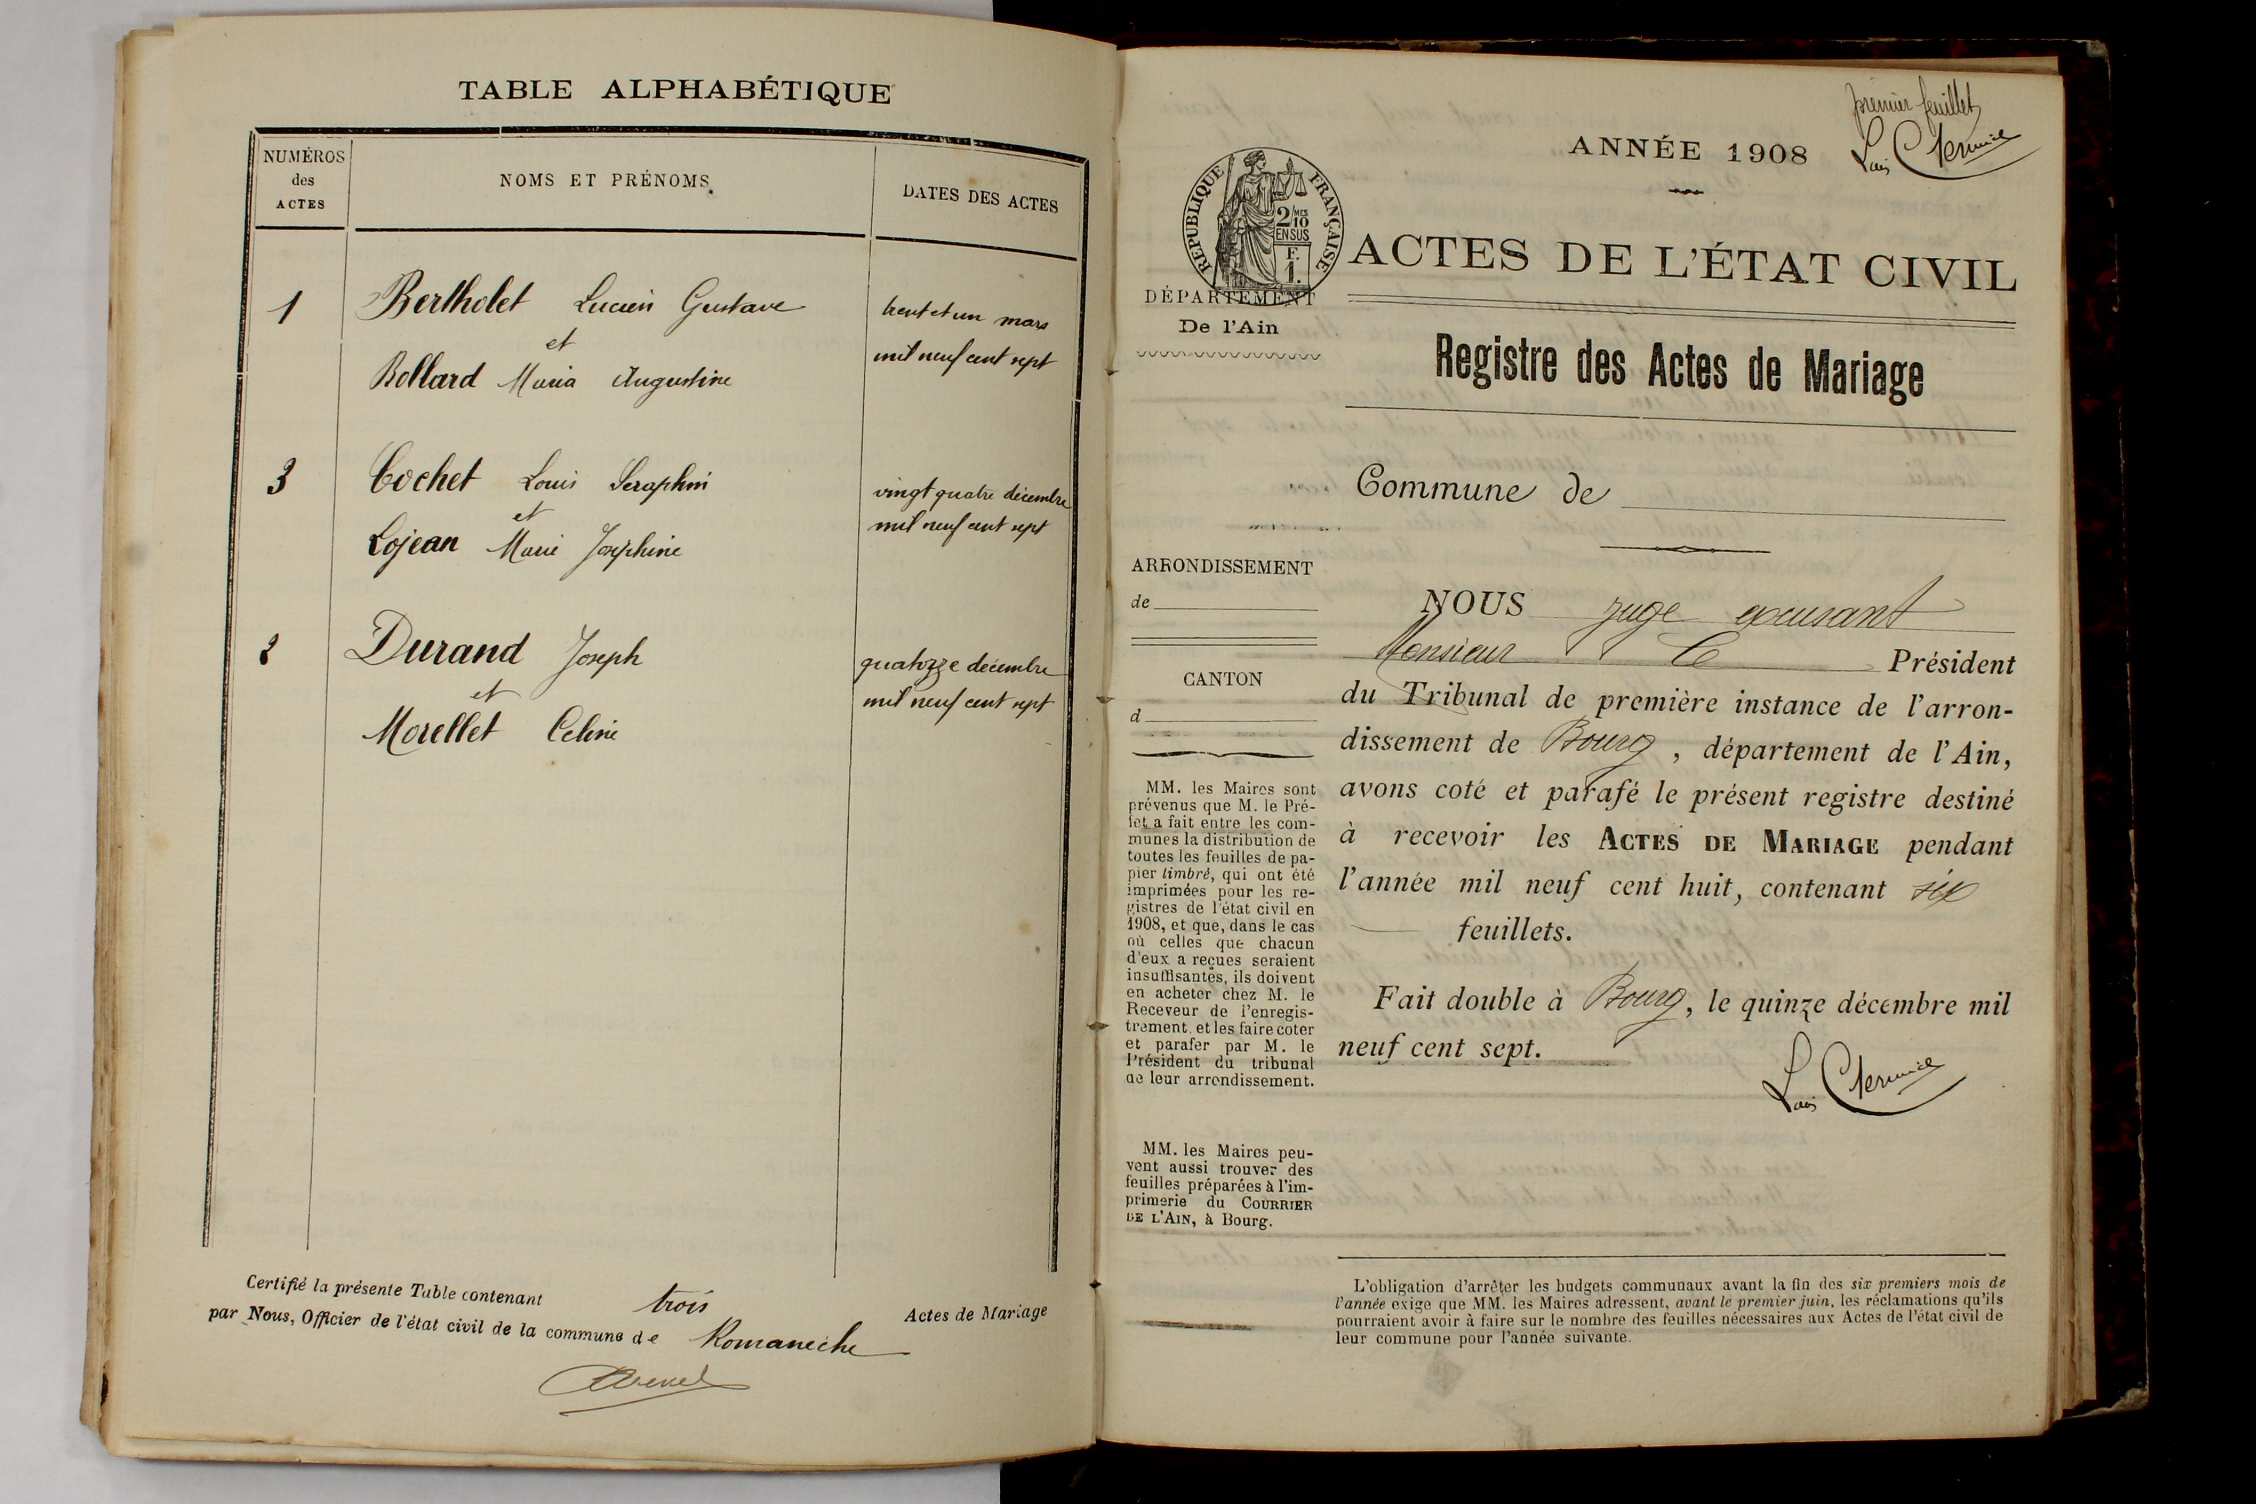 TABLE ALPHABÉTIQUE
NUMÉROS
des
ACTES
NOMS ET PRÉNOMS
DATES DES ACTES
1
Bertholet Lucien Gustave
et
Bollard Maria Augustine
trent et un mars
mil neuf cent sept
3
Cochet Louis Seraphin
et
Lojean Marie Josephine
vingt quatre décembre
mil neuf cent sept
2
Durand Joseph
et
Morellet Celine
quatorze décembre
mil neuf cent sept
Certifié la présente Table contenant trois Actes de Mariage
par Nous, Officier de l'état civil de la commune de Romanèche
premier feuillet
ANNÉE 1908
RÉPUBLIQUE FRANÇAISE
2/10 MES
EN SUS
F.
1.
ACTES DE L'ÉTAT CIVIL
DÉPARTEMENT
De l'Ain
Registre des Actes de Mariage
Commune de
ARRONDISSEMENT
de
CANTON
d
MM. les Maires sont
prévenus que M. le Pré-
fet a fait entre les com-
munes la distribution de
toutes les feuilles de pa-
pier timbré, qui ont été
imprimées pour les re-
gistres de l'état civil en
1908, et que, dans le cas
où celles que chacun
d'eux a reçues seraient
insuffisantes, ils doivent
en acheter chez M. le
Receveur de l'enregis-
trement, et les faire coter
et parafer par M. le
Président du tribunal
de leur arrondissement.
MM. les Maires peu-
vent aussi trouver des
feuilles préparées à l'im-
primerie du COURRIER
DE L'AIN, à Bourg.
NOUS juge excusant
Monsieur le Président
du Tribunal de première instance de l'arron-
dissement de Bourg, département de l'Ain,
avons coté et parafé le présent registre destiné
à recevoir les ACTES DE MARIAGE pendant
l'année mil neuf cent huit, contenant six
feuillets.
Fait double à Bourg, le quinze décembre mil
neuf cent sept.
L'obligation d'arrêter les budgets communaux avant la fin des six premiers mois de
l'année exige que MM. les Maires adressent, avant le premier juin, les réclamations qu'ils
pourraient avoir à faire sur le nombre des feuilles nécessaires aux Actes de l'état civil de
leur commune pour l'année suivante.